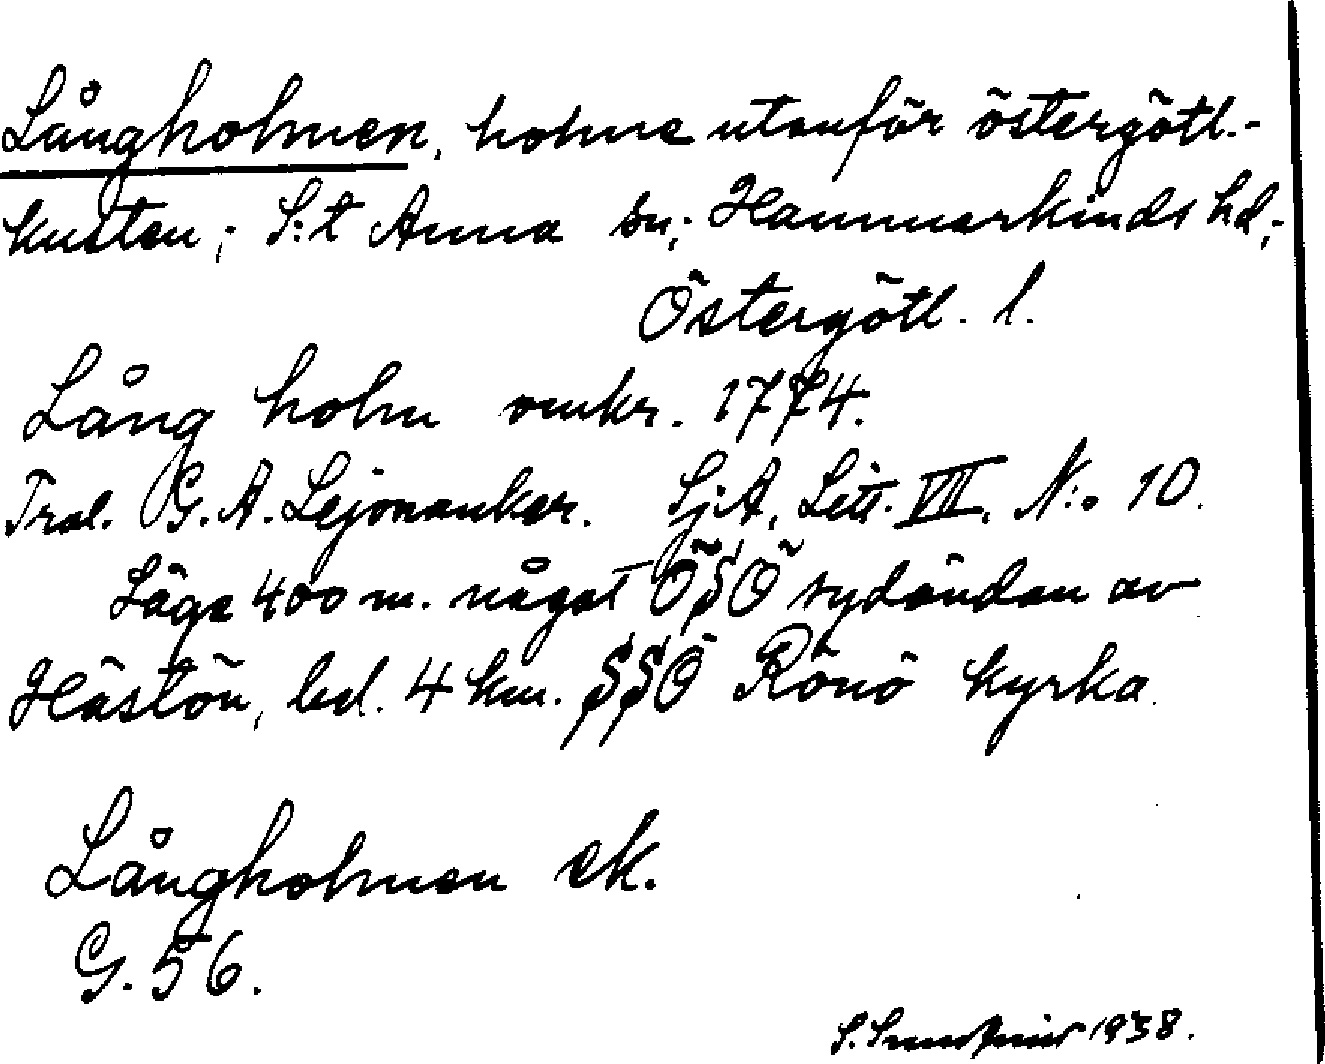 Långholmen, holme utanför östergötl.-
kusten; S:t Anna sn; Hammarkinds hd;-
Östergötl. l.
Lång holm omkr. 1774.
Trol. G. A. Lejonanker. Sj.A. Litt. VIII. N:o 10.
Läge 400 m. något ÖSÖ sydändan av
Hästön, bel. 4 km. SSÖ Rönö kyrka.
Långholmen ek.
G. 56.
S. 1938.